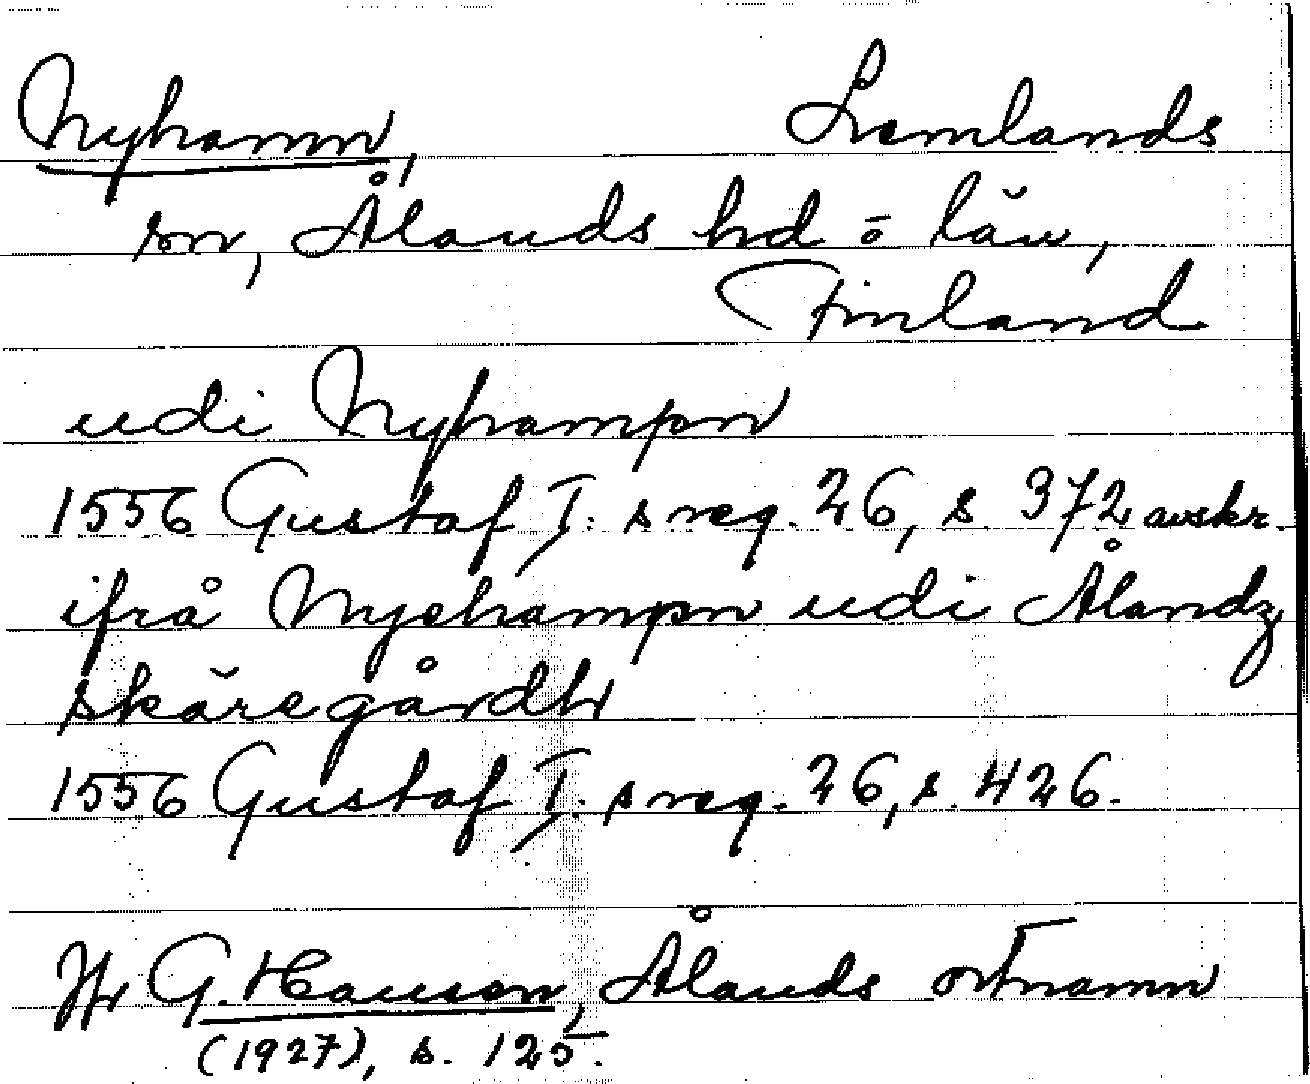 Nyhamn, Lemlands
sn, Ålands hd o län,
Finland
udi Nyhampn
1556 Gustaf I:s reg. 26, s. 372 avskr.
ifrå Nyehampn udi Ålandz
skäregårdh
1556 Gustaf I:s reg. 26, s. 426.
Jfr G. Hausen, Ålands ortnamn
(1927), s. 125.